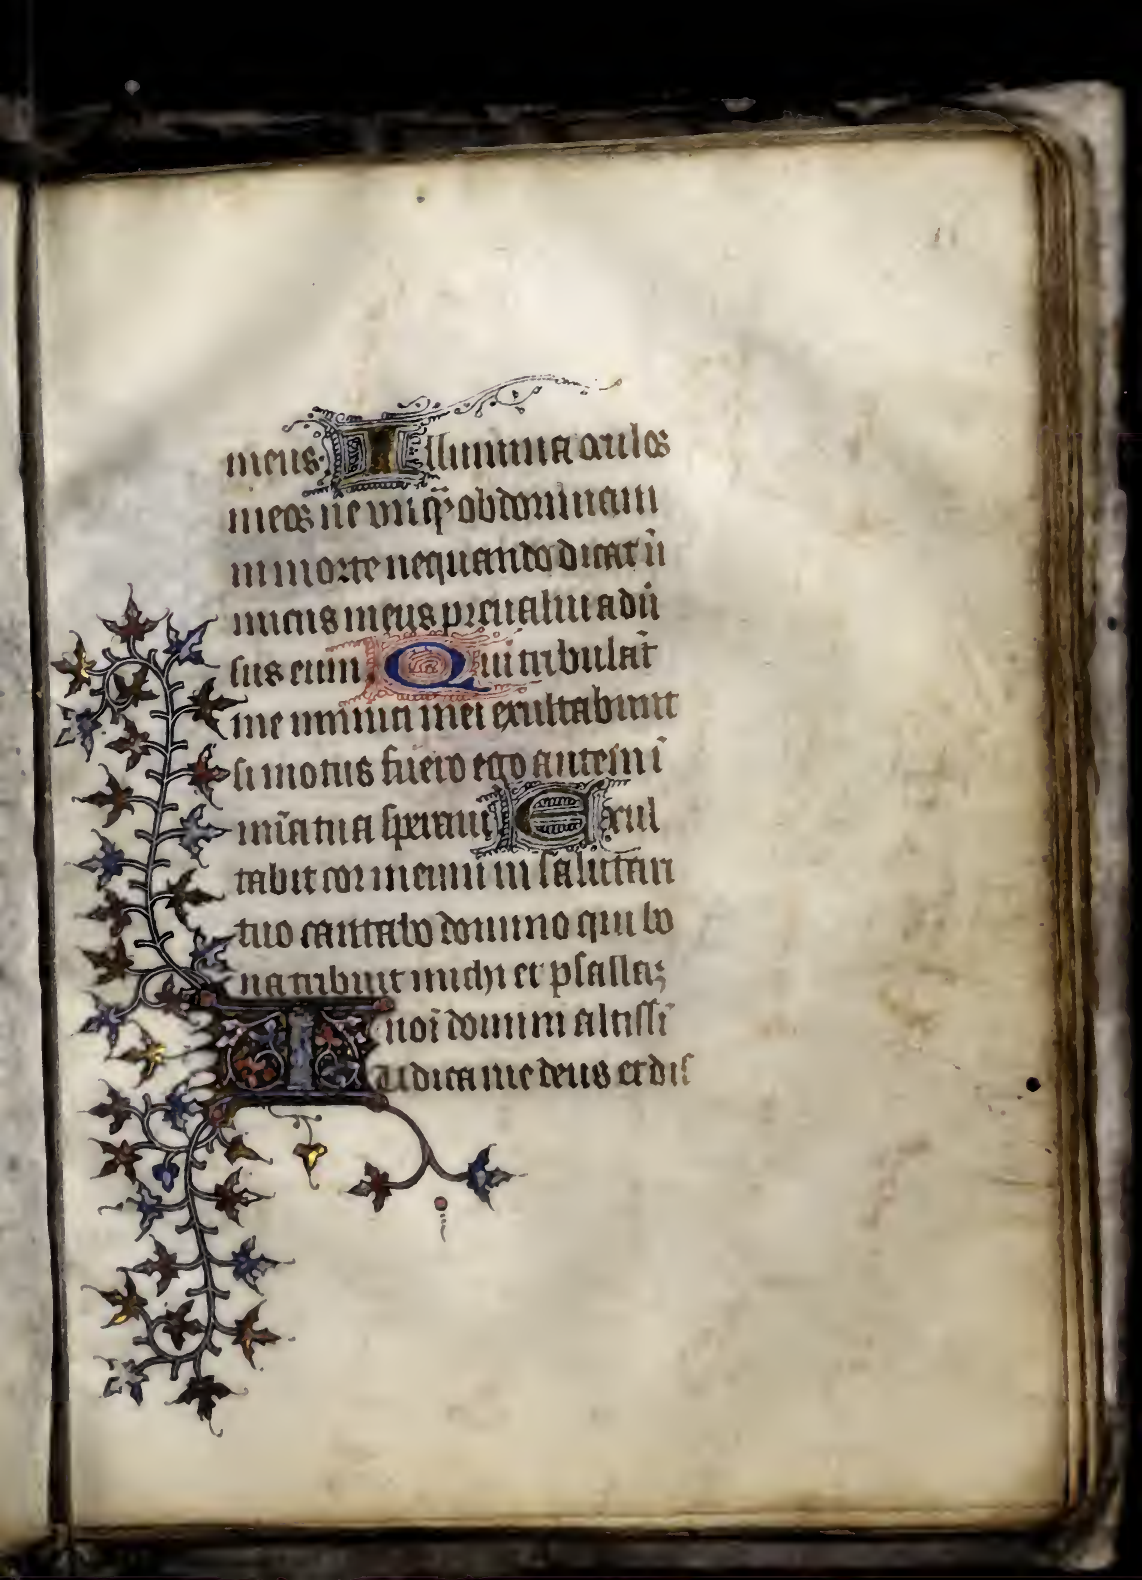 meus. Illumina oculos
meos ne vnq̄ obdormiam
in morte nequando dicat īī
micus meus preualui adū
sus eum Qui tribulāt
me inimici mei exultabunt
si motus fuero ego autem ī
mīa tua speraui Exul
tabit cor meum in salutari
tuo cantabo domino qui bo
na tribuit michi et psallaʒ
noī domini altissī
Iudica me deus et dis